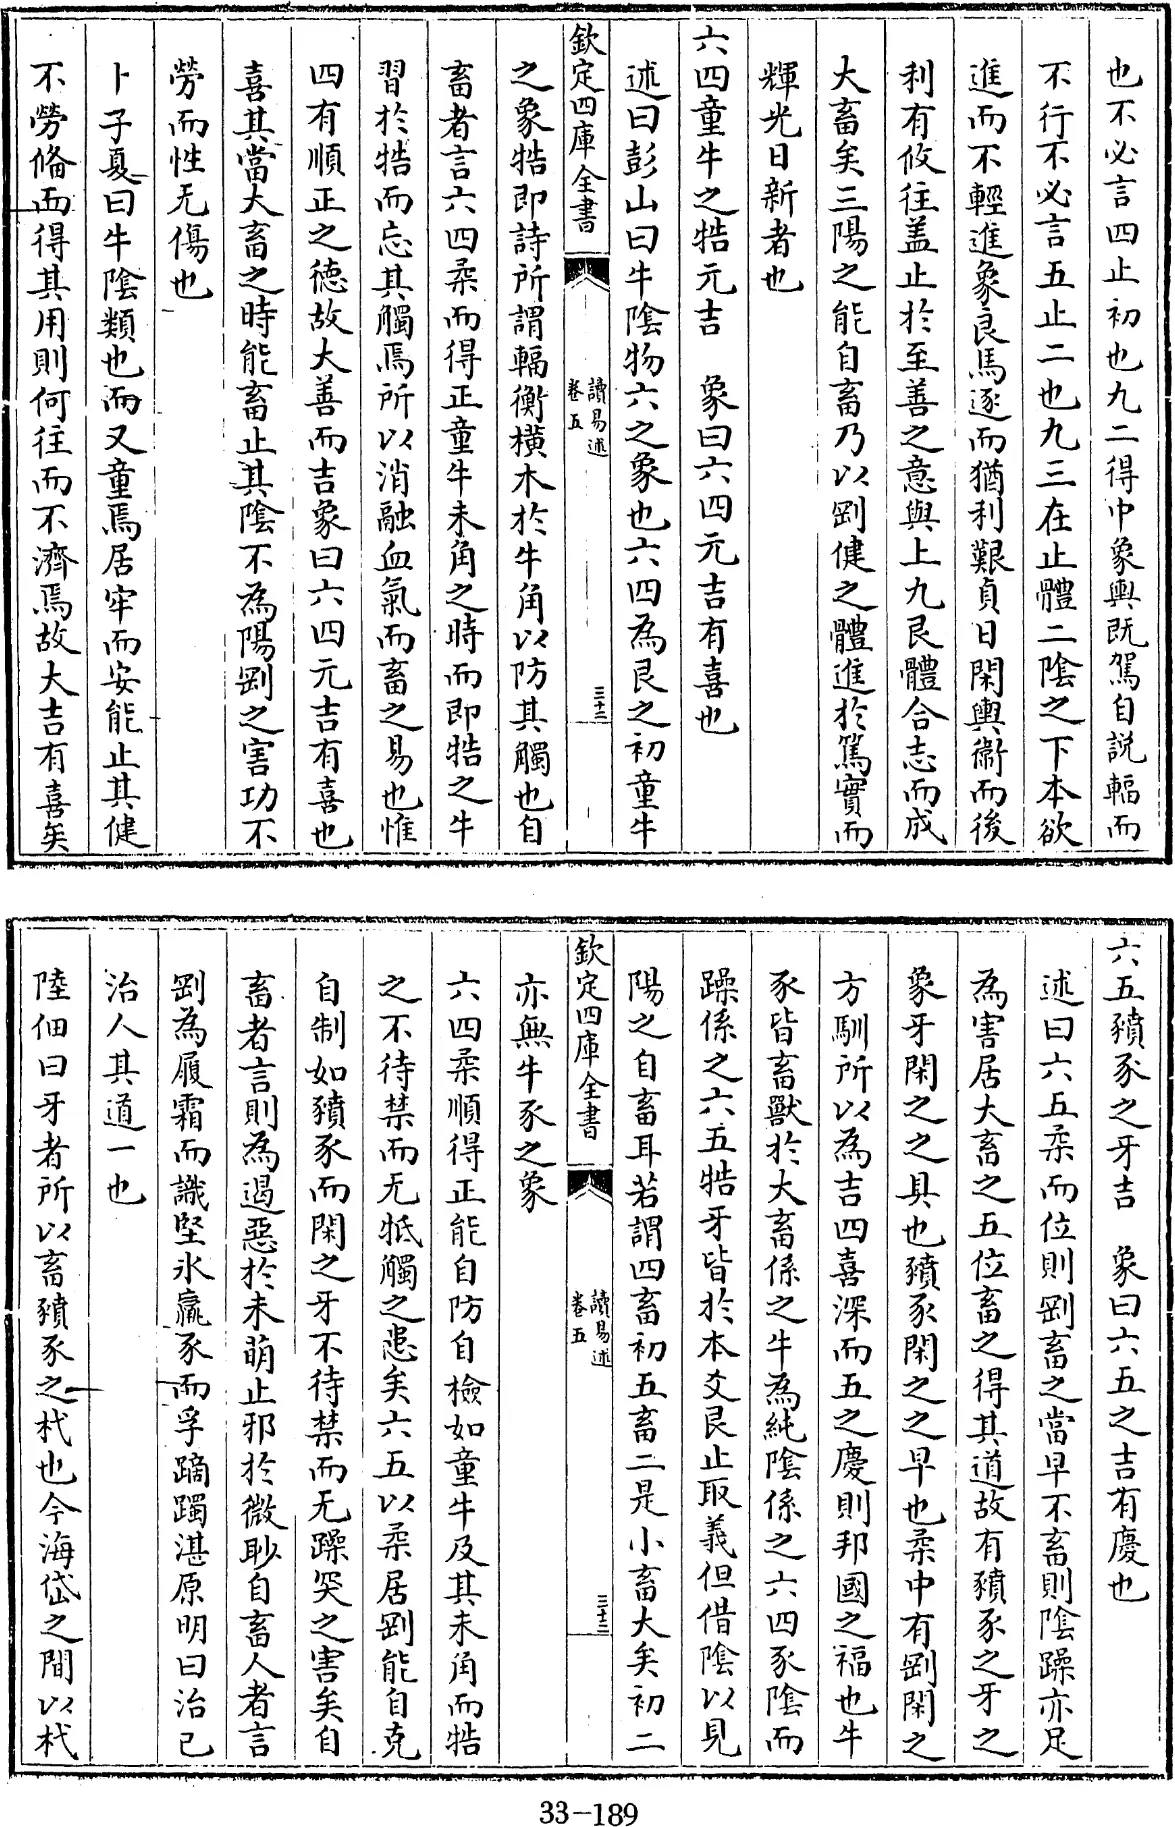 也不必言四止初也九二得中象輿既駕自説輻而
不行不必言五止二也九三在止體二陰之下本欲
進而不輕進象良馬逐而猶利艱貞日閑輿衞而後
利有攸往盖止於至善之意與上九艮體合志而成
大畜矣三陽之能自畜乃以剛健之體進於篤實而
輝光日新者也
六四童牛之牿元吉　象曰六四元吉有喜也
述曰彭山曰牛陰物六之象也六四為艮之初童牛
欽定四庫全書
讀易述
卷五
三十二
之象牿即詩所謂輻衡横木於牛角以防其觸也自
畜者言六四柔而得正童牛未角之時而即牿之牛
習於牿而忘其觸焉所以消融血氣而畜之易也惟
四有順正之德故大善而吉象曰六四元吉有喜也
喜其當大畜之時能畜止其陰不為陽剛之害功不
勞而性无傷也
卜子夏曰牛陰類也而又童焉居牢而安能止其健
不勞備而得其用則何往而不濟焉故大吉有喜矣
六五豶豕之牙吉　象曰六五之吉有慶也
述曰六五柔而位則剛畜之當早不畜則陰躁亦足
為害居大畜之五位畜之得其道故有豶豕之牙之
象牙閑之之具也豶豕閑之之早也柔中有剛閑之
方馴所以為吉四喜深而五之慶則邦國之福也牛
豕皆畜獸於大畜係之牛為純陰係之六四豕陰而
躁係之六五牿牙皆於本爻艮止取義但借陰以見
陽之自畜耳若謂四畜初五畜二是小畜大矣初二
欽定四庫全書
讀易述
卷五
三十三
亦無牛豕之象
六四柔順得正能自防自檢如童牛及其未角而牿
之不待禁而无牴觸之患矣六五以柔居剛能自克
自制如豶豕而閑之牙不待禁而无躁突之害矣自
畜者言則為遏惡於未萌止邪於微眇自畜人者言
剛為履霜而識堅氷羸豕而孚蹢躅湛原明曰治己
治人其道一也
陸佃曰牙者所以畜豶豕之杙也今海岱之間以杙
33-189